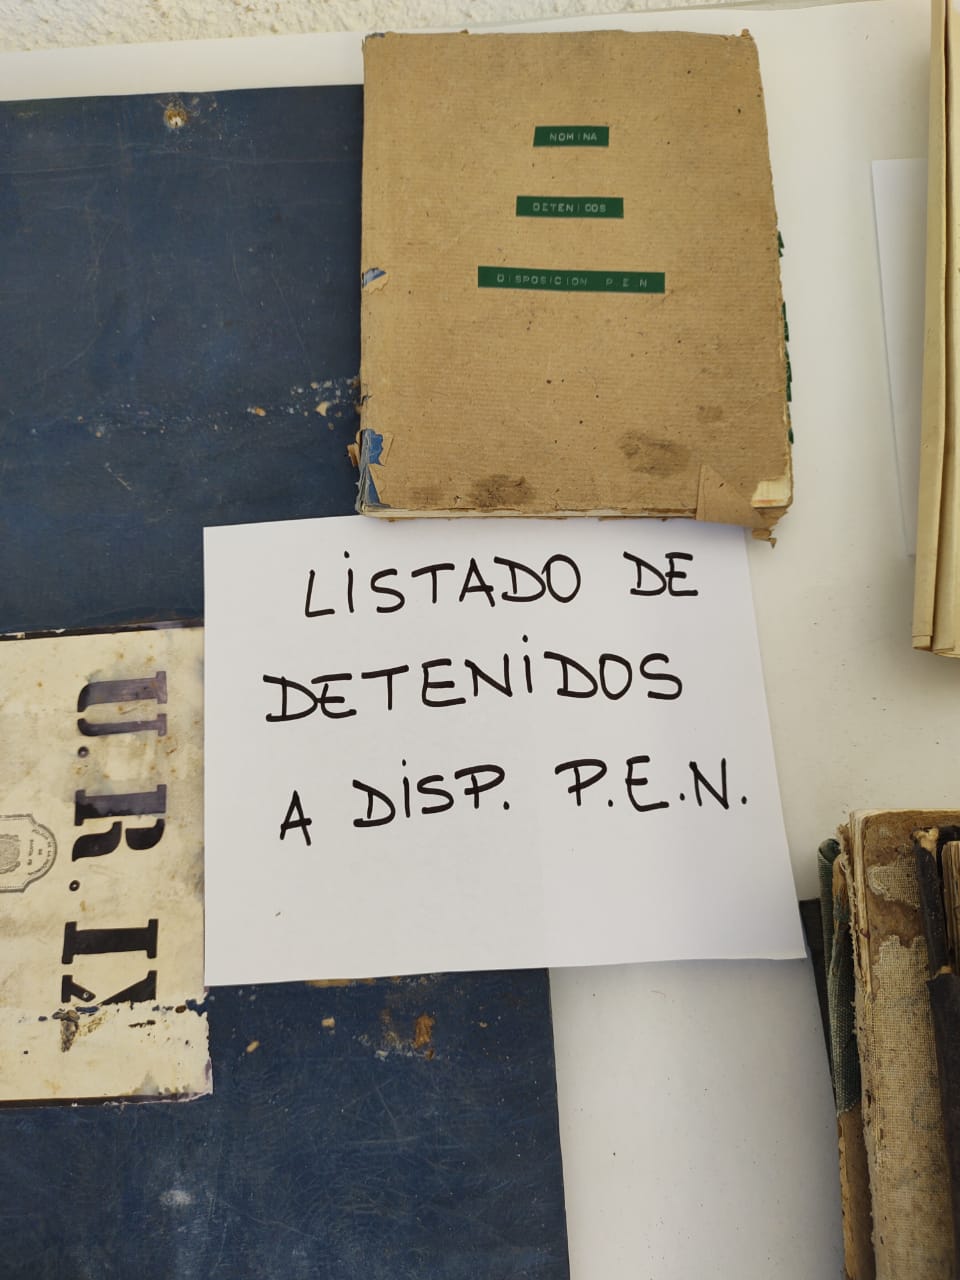 NOMINA
DETENIDOS
DISPOSICION P.E.N
LiSTADO DE
DETENiDOS
A DiSP. P.E.N.
U.R. IX